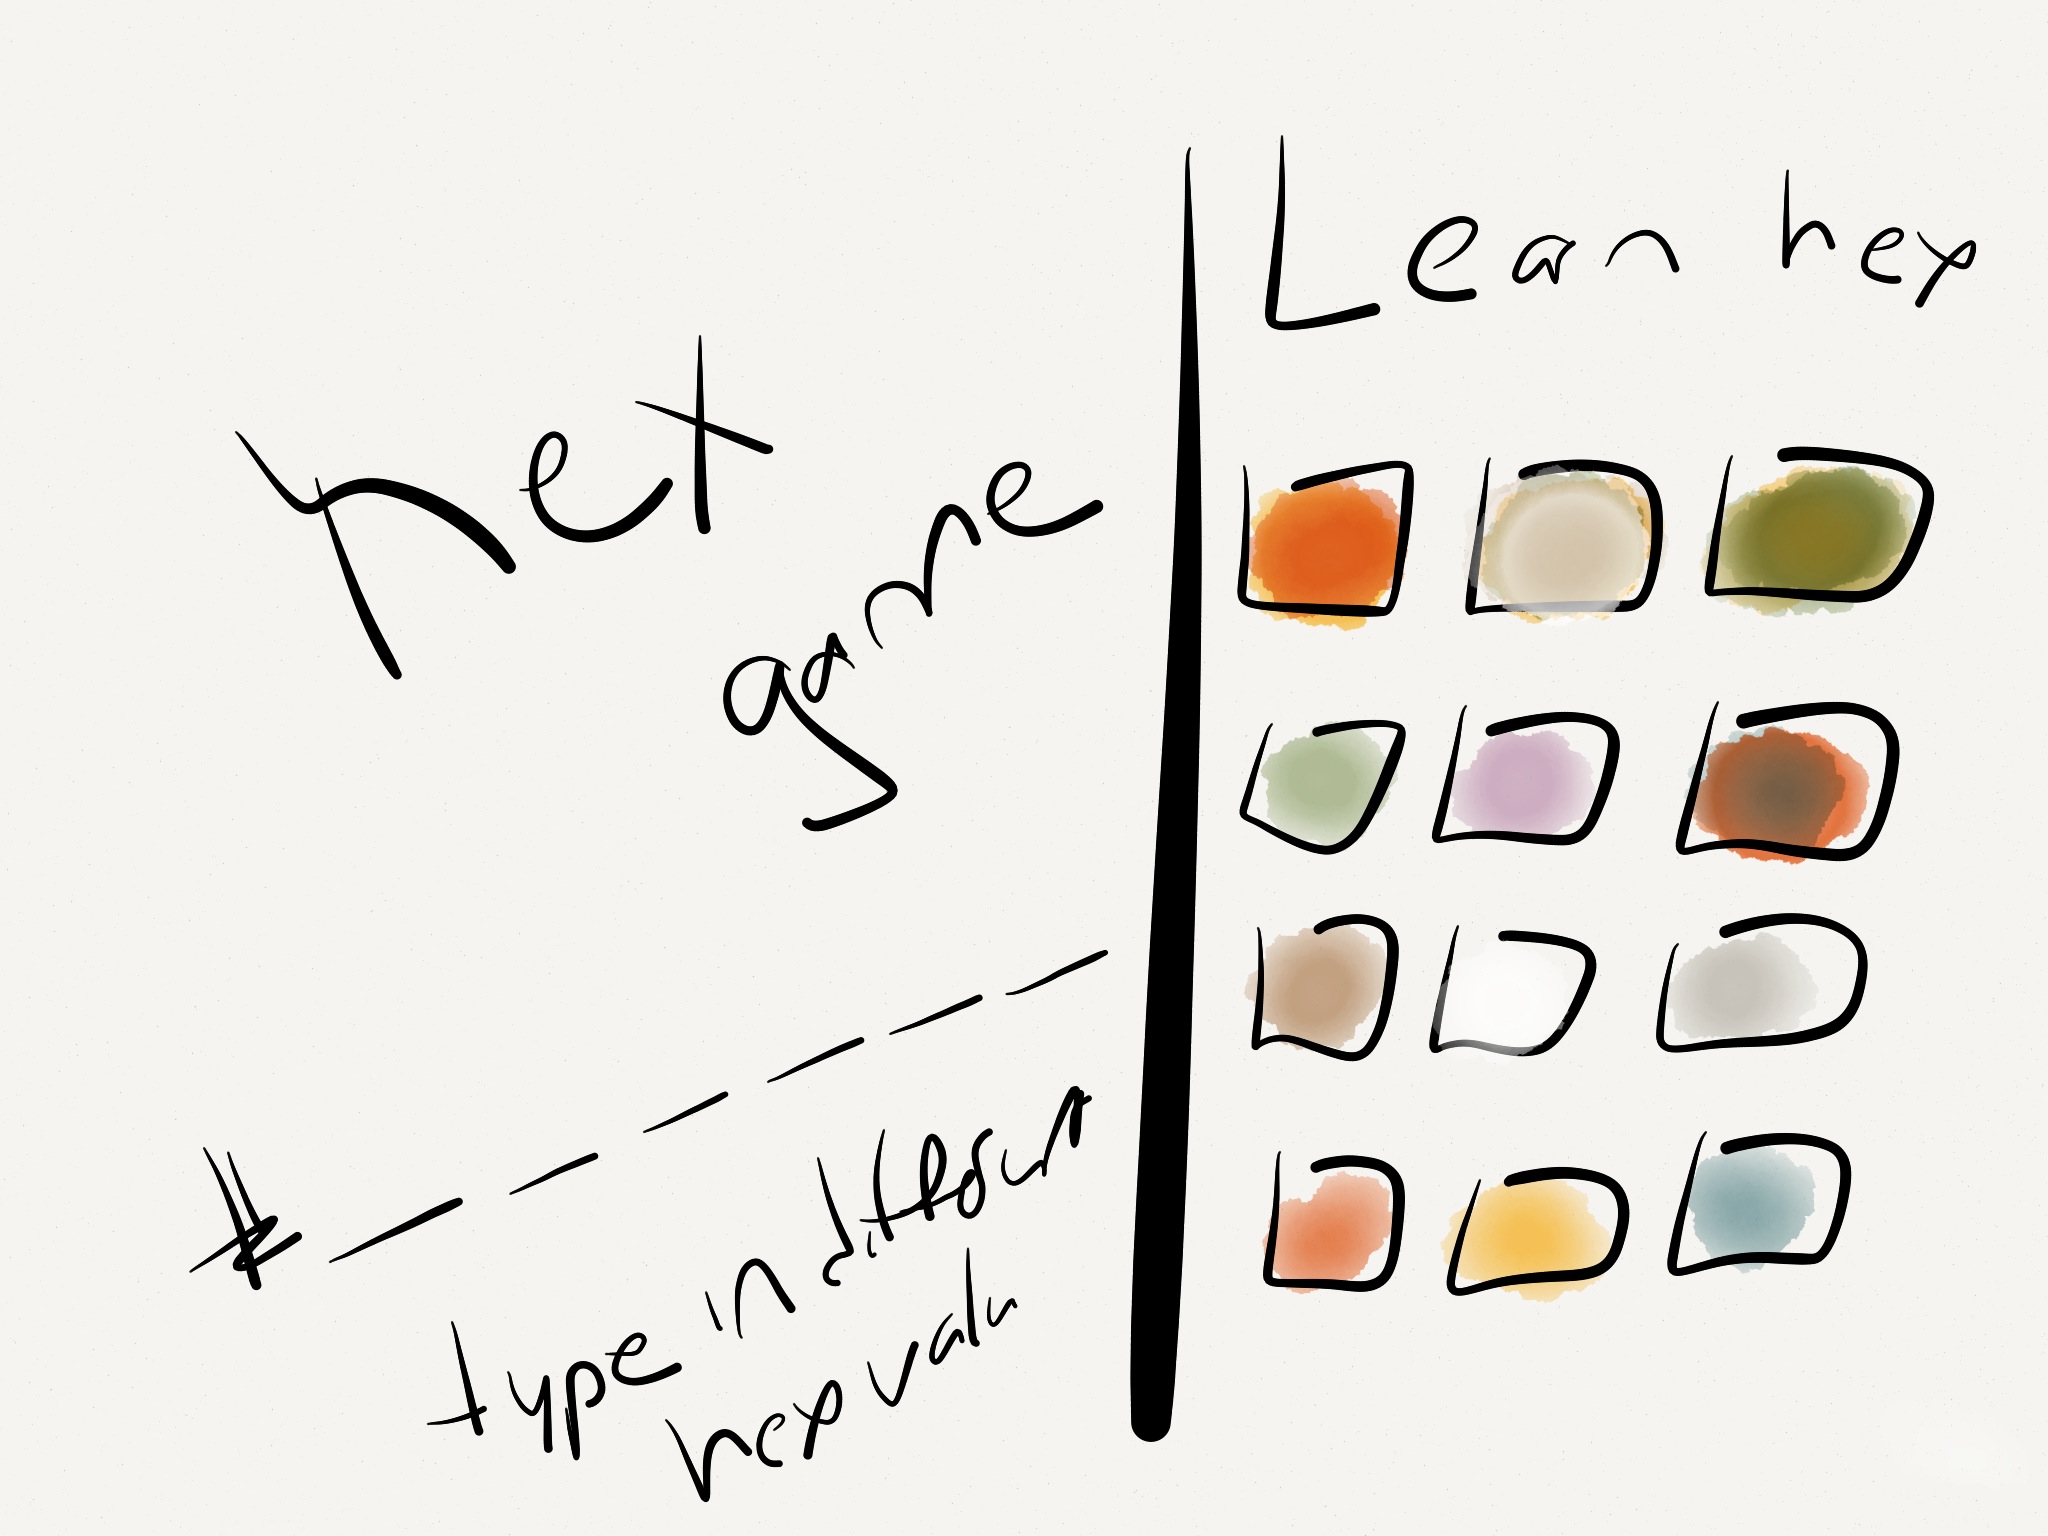 hex
game
# _ _ _ _ _ _ _
type in different
hex valu
Lean hex